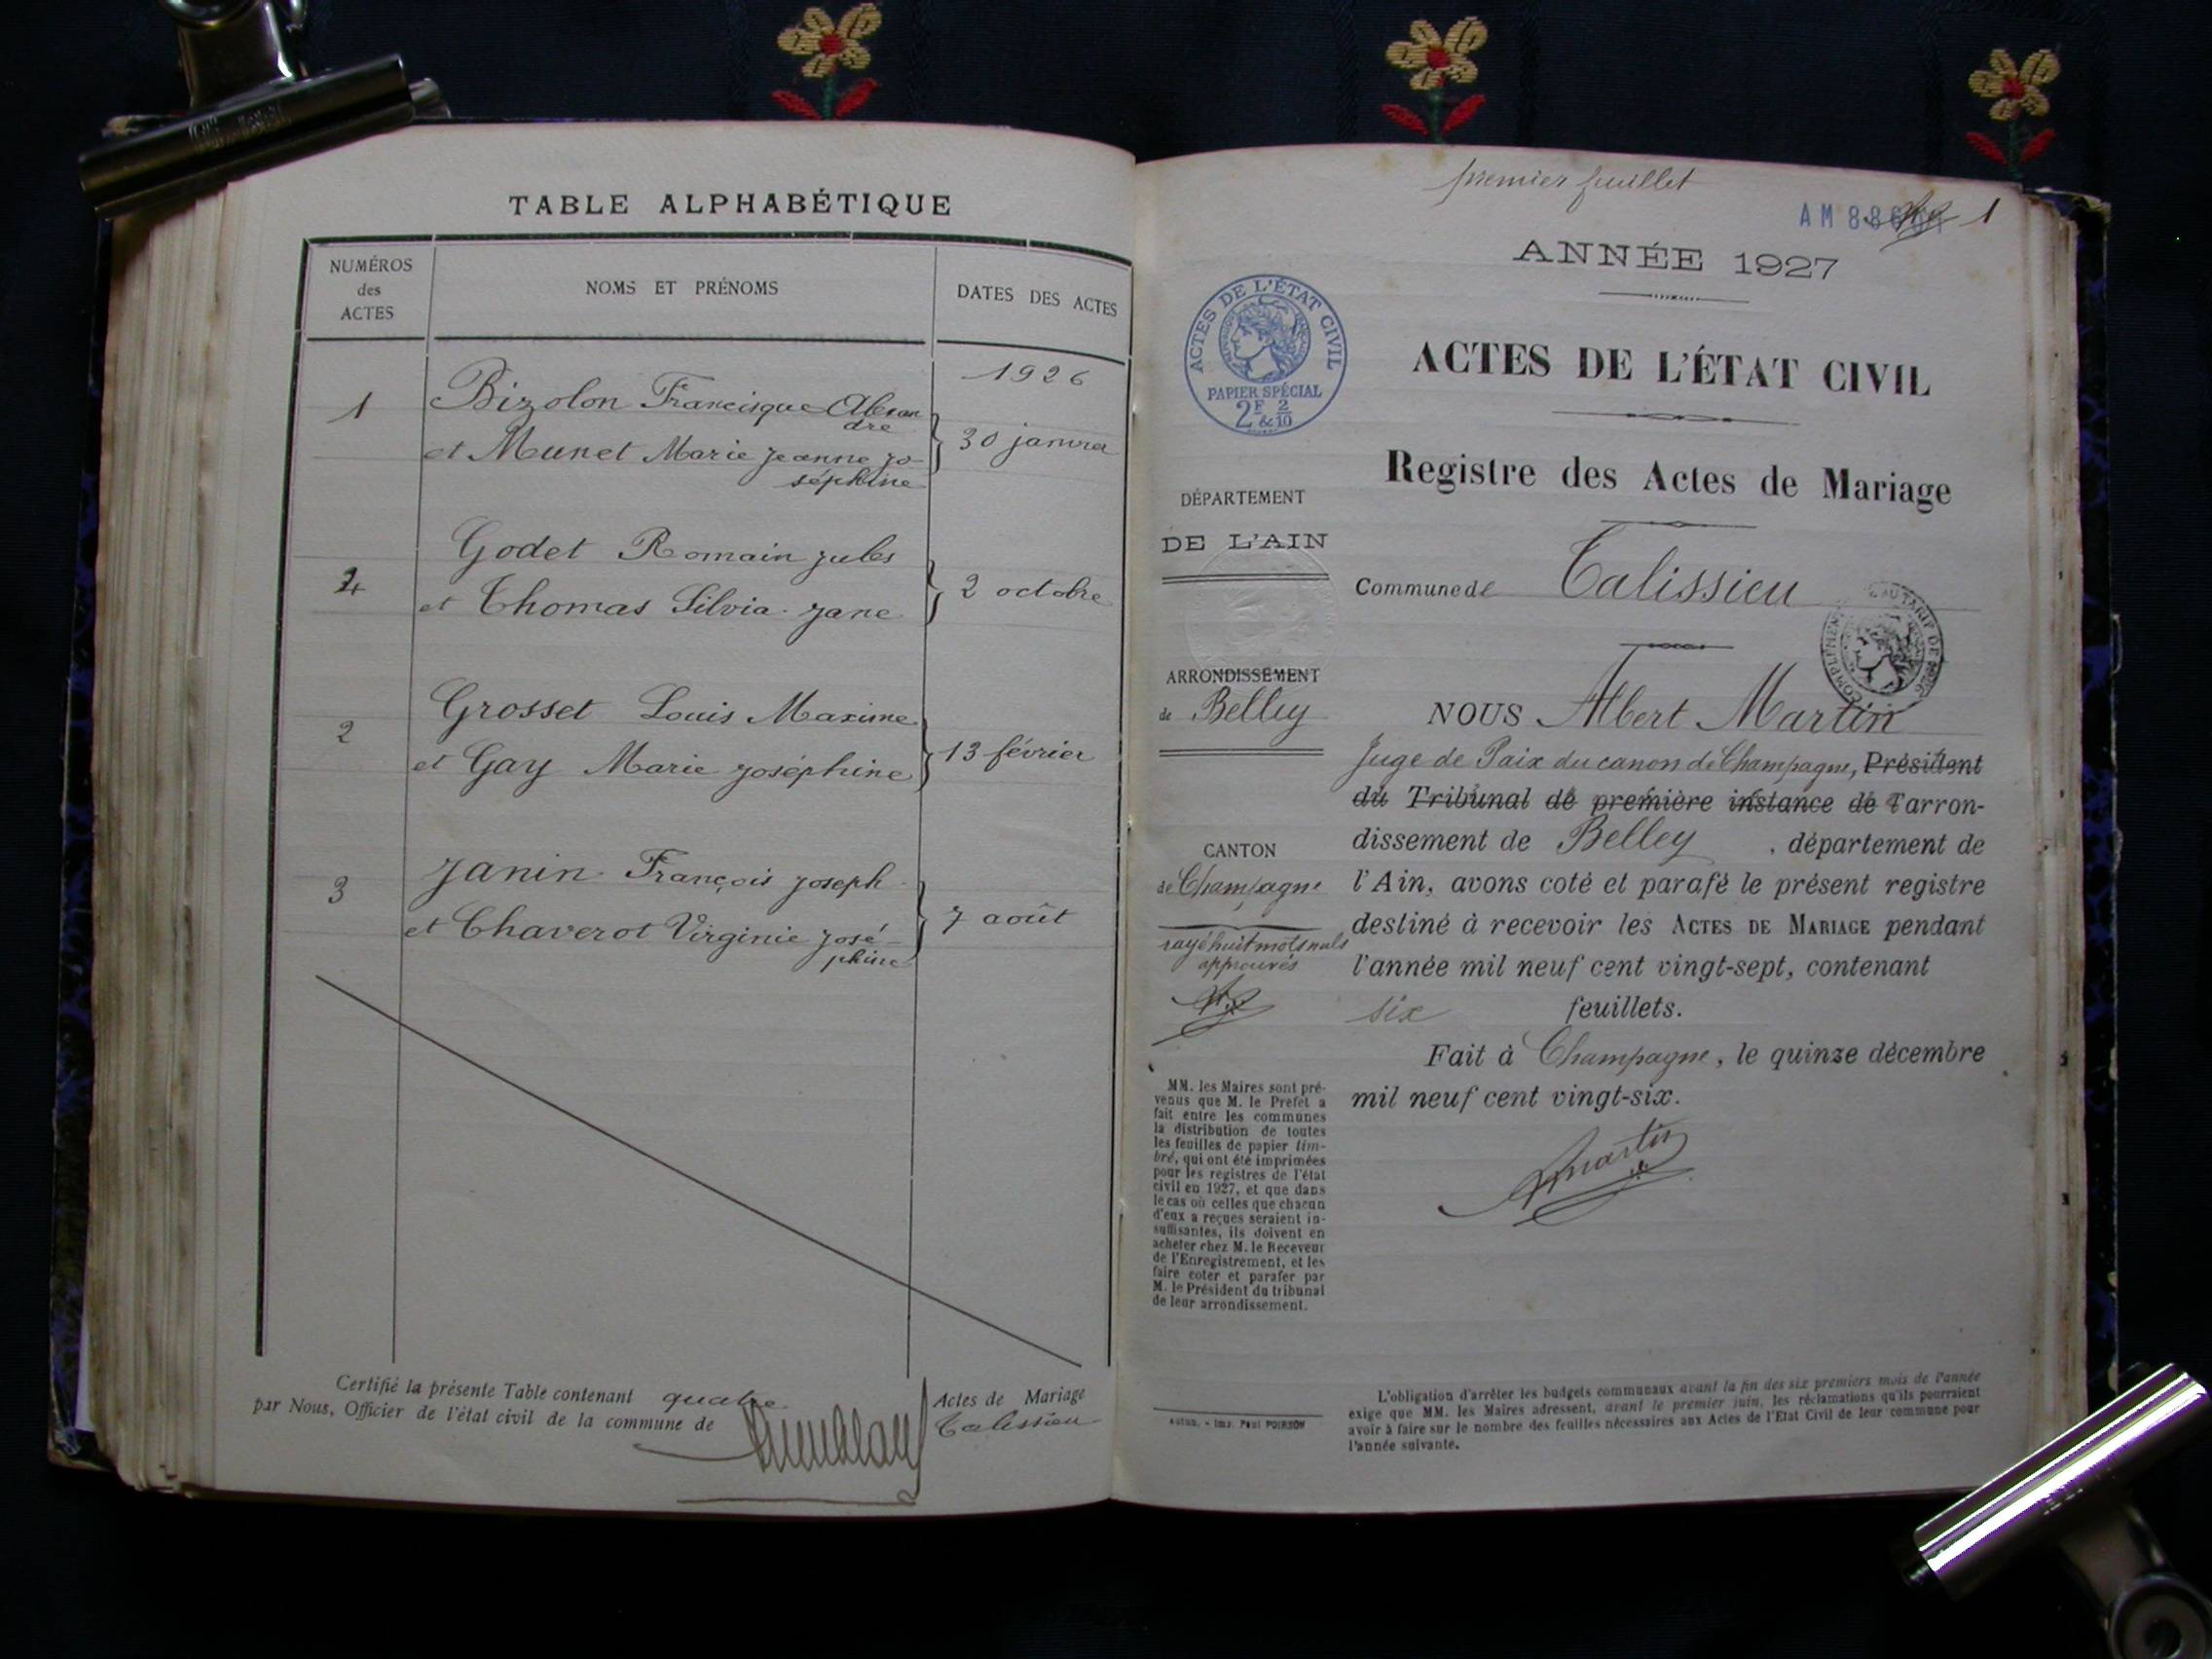 TABLE ALPHABÉTIQUE
NUMÉROS
des
ACTES
NOMS ET PRÉNOMS
DATES DES ACTES
1926
1
Bizolon Francisque Alexan
dre
et Munet Marie Jeanne Jo-
séphine
30 janvier
Godet Romain Jules
4
et Thomas Silvia Jane
2 octobre
Grosset Louis Maxime
2
et Gay Marie Joséphine
13 février
Janin François Joseph
3
et Chaverot Virginie José-
phine
7 août
Certifié la présente Table contenant quatre Actes de Mariage
par Nous, Officier de l'état civil de la commune de Talissieu
premier feuillet
AM 88
1
ANNÉE 1927
ACTES DE L'ÉTAT CIVIL
RÉPUBLIQUE FRANÇAISE
PAPIER SPÉCIAL
2F & 2/10
ACTES DE L'ÉTAT CIVIL
Registre des Actes de Mariage
DÉPARTEMENT
DE L'AIN
Commune de Talissieu
COMPLÉMENT AU TARIF DE 1926
ARRONDISSEMENT
de Belley
CANTON
de Champagne
rayé huit mots nuls
approuvés
NOUS Albert Martin
Juge de Paix du canon de Champagne, Président
du Tribunal de première instance de l'arron-
dissement de Belley, département de
l'Ain, avons coté et parafé le présent registre
destiné à recevoir les ACTES DE MARIAGE pendant
l'année mil neuf cent vingt-sept, contenant
six feuillets.
Fait à Champagne, le quinze décembre
mil neuf cent vingt-six.
AMartin
MM. les Maires sont pré-
venus que M. le Prefet a
fait entre les communes
la distribution de toutes
les feuilles de papier tim-
bré, qui ont été imprimées
pour les registres de l'état
civil en 1927, et que dans
le cas où celles que chacun
d'eux a reçues seraient in-
suffisantes, ils doivent en
acheter chez M. le Receveur
de l'Enregistrement, et les
faire coter et parafer par
M. le Président du tribunal
de leur arrondissement.
Autun. - Imp. Paul POIRSON
L'obligation d'arrêter les budgets communaux avant la fin des six premiers mois de l'année
exige que MM. les Maires adressent, avant le premier juin, les réclamations qu'ils pourraient
avoir à faire sur le nombre des feuilles nécessaires aux Actes de l'Etat Civil de leur commune pour
l'année suivante.